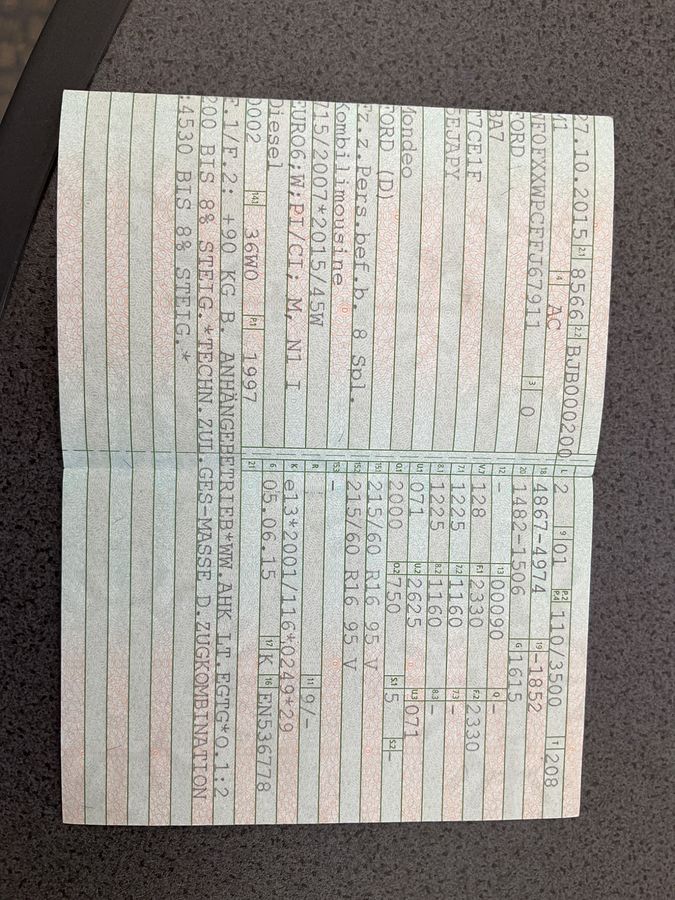 27.10.2015 2.1 8566 2.2 BJB000200 L 2 9 01 P.2 P.4 110/3500 T 208
M1 4 AC 18 4867-4974 19 -1852
WF0FXXWPCFFJ67911 3 0 20 1482-1506 G 1615
FORD 12 - 13 00090 Q -
BA7 V.7 128 F.1 2330 F.2 2330
7.1 1225 7.2 1160 7.3 -
8.1 1225 8.2 1160 8.3 -
Mondeo U.1 071 U.2 2625 U.3 071
FORD (D) O.1 2000 O.2 750 S.1 5 S.2 -
Fz.z.Pers.bef.b. 8 Spl. 15.1 215/60 R16 95 V
Kombilimousine 15.2 215/60 R16 95 V
715/2007*2015/45W 15.3 -
EURO6;W;PI/CI; M, N1 I R 11 9/-
Diesel K e13*2001/116*0249*29
0002 14.1 36W0 P.1 1997 6 05.06.15 17 K 16 EN536778
21
F.1/F.2: +90 KG B. ANHÄNGEBETRIEB*WW.AHK LT.EGTG*O.1:2
200 BIS 8% STEIG.*TECHN.ZUL.GES-MASSE D.ZUGKOMBINATION
:4530 BIS 8% STEIG.*